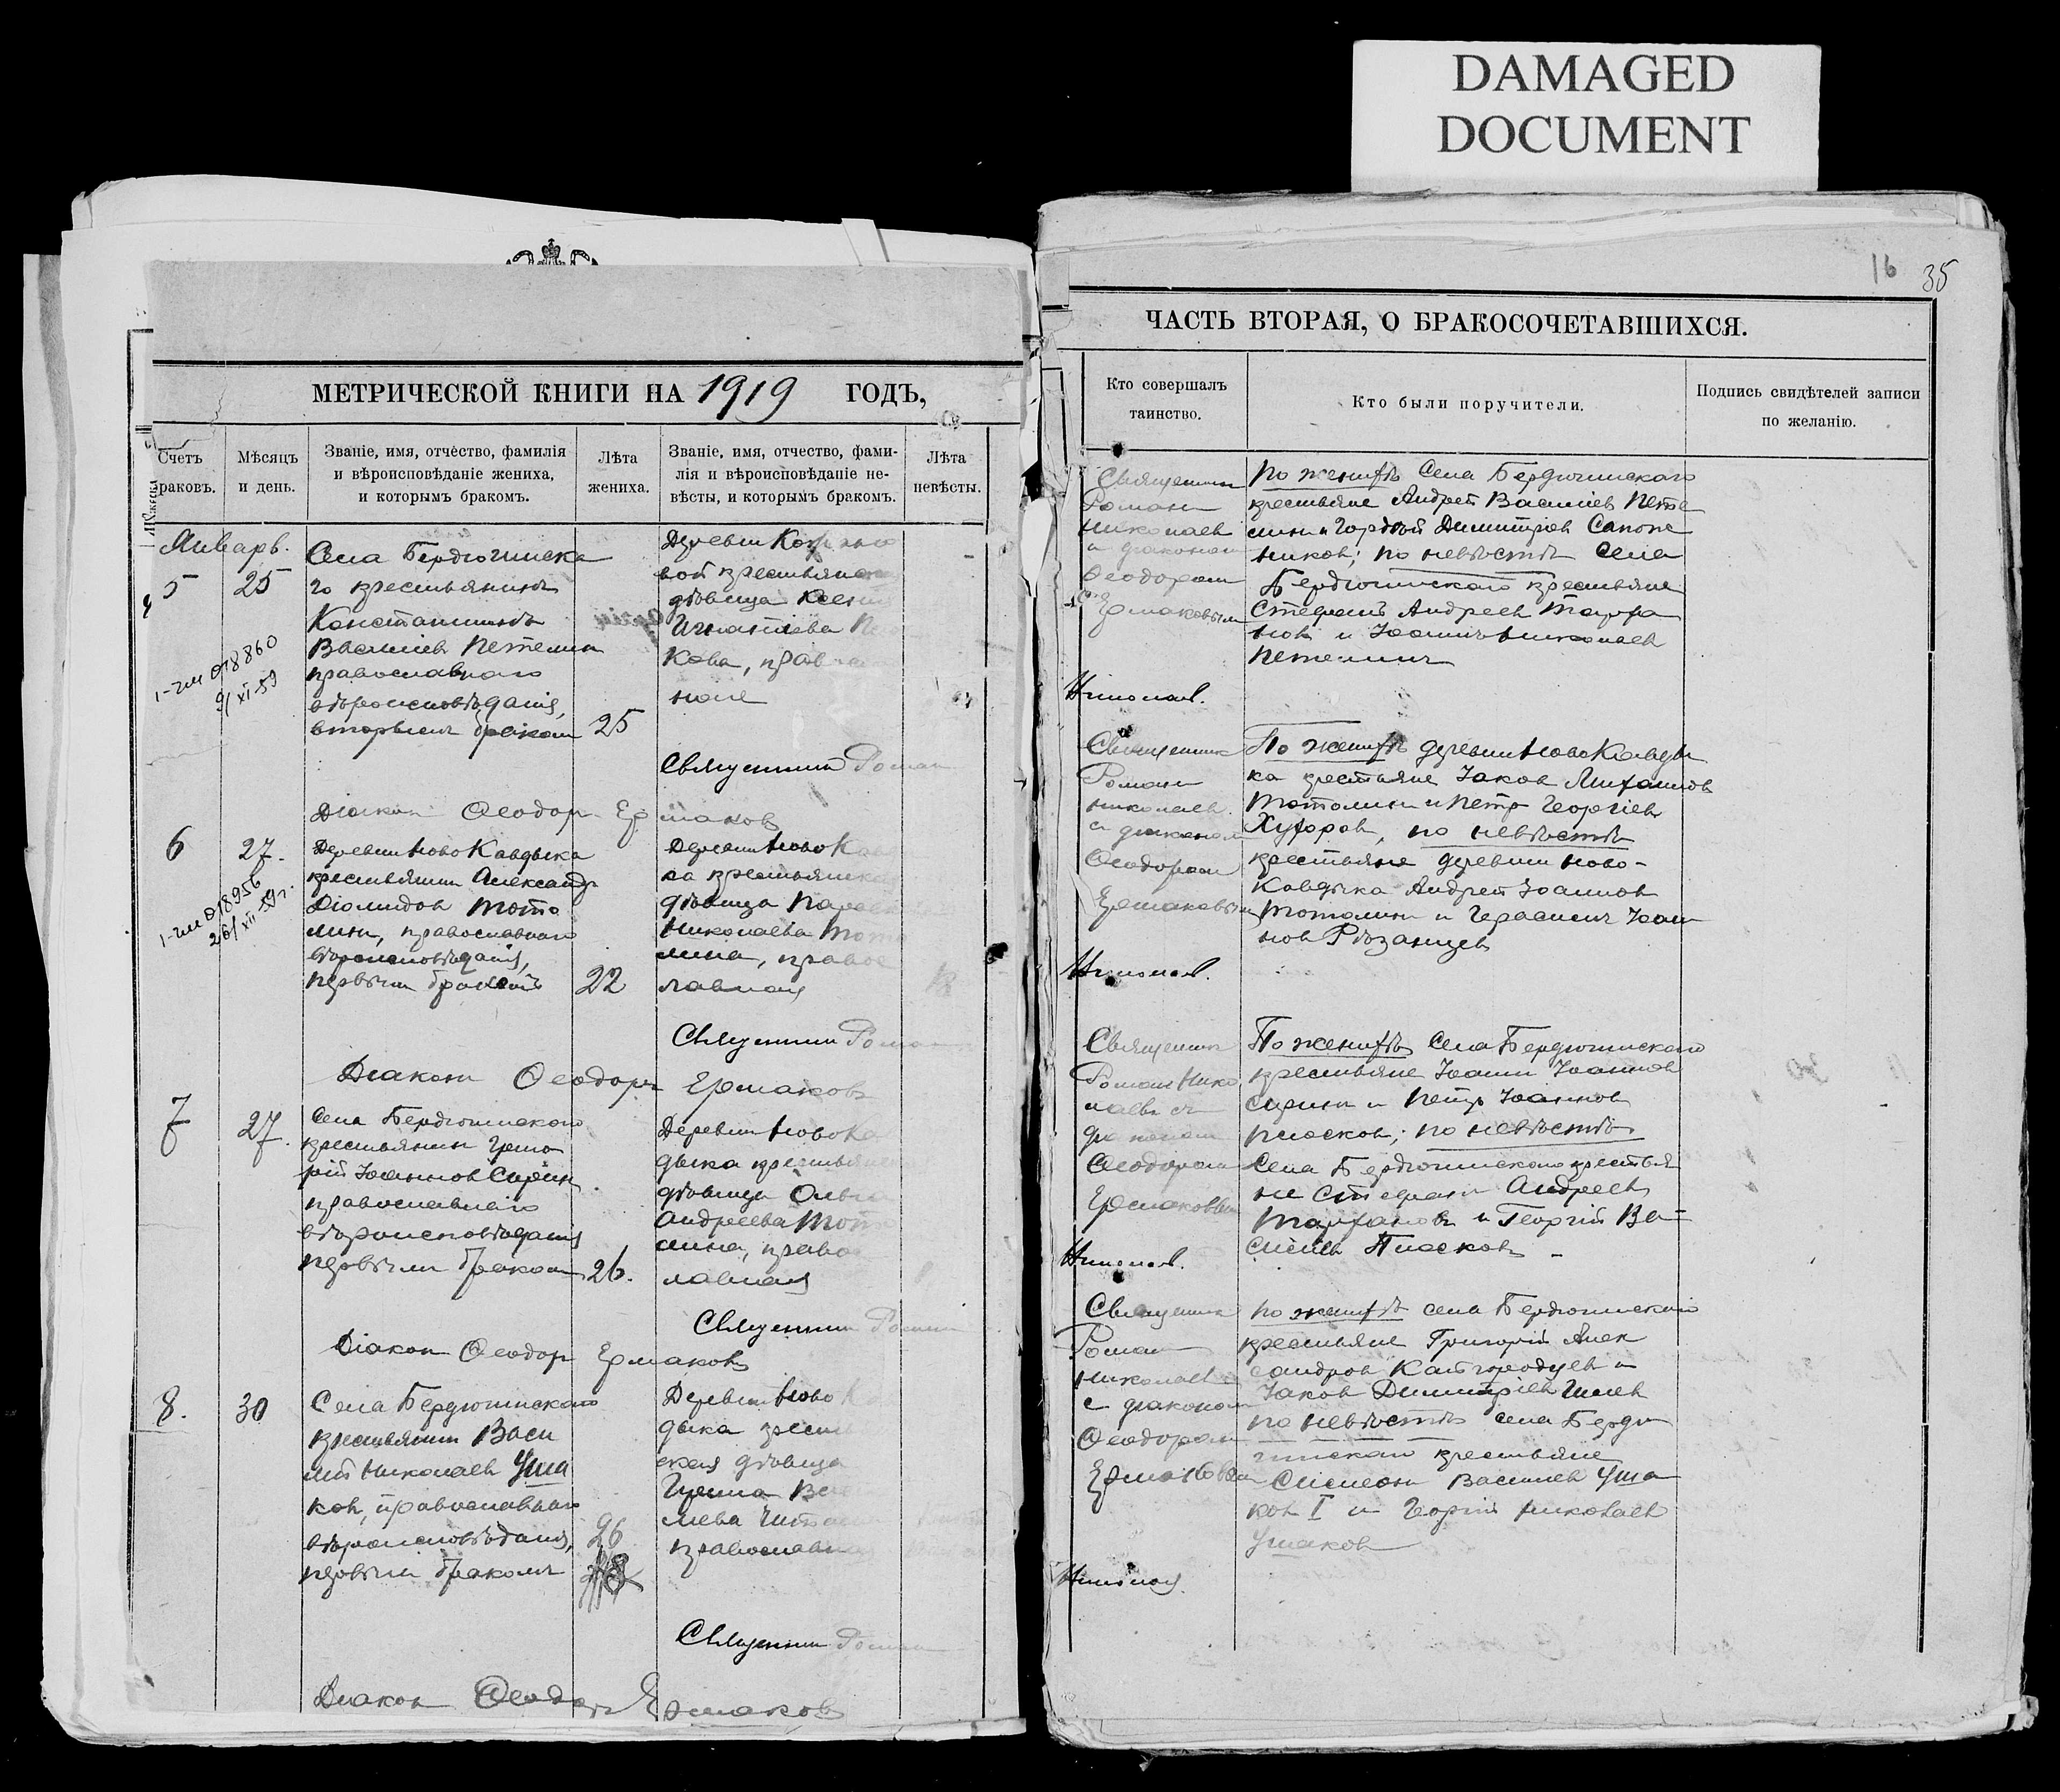 DAMAGED
DOCUMENT
МЕТРИЧЕСКОЙ КНИГИ НА 1919 ГОДЪ,
Счетъ
браковъ.
Мѣсяцъ
и день.
Званіе, имя, отчество, фамилія
и вѣроисповѣданіе жениха,
и которымъ бракомъ.
Лѣта
жениха.
Званіе, имя, отчество, фами-
лія и вѣроисповѣданіе не-
вѣсты, и которымъ бракомъ.
Лѣта
невѣсты.
Январь.
5
25
Села Бердюгинска
го крестьянинъ
Константинъ
Василіев Петелин
православнаго
вѣроисповѣданія,
вторымъ браком
25
Деревни
вой крестьянская
дѣвица Ксения
Игнатіева
кова, прав
ная
018860
9/XI-59
Священник Роман
Діакон Ѳеодор Ермаков
6
27.
Деревни Ново Кавдыка
крестьянин Александр
Діомидов Тото
лин, православнаго
вѣроисповѣданія,
первым браком
22
Деревни Ново Кав
ка крестьянская
дѣвица
Николаева Тото
лина, правос
лавная
18
018956
26/XII-59г.
Священник Роман
Діакон Ѳеодоръ Ермаковъ
7
27.
Села Бердюгинскаго
крестьянин Григо
рій Іоаннов Сирин
православнаго
вѣроисповѣданія
первым браком
26.
Деревни Ново Ка
дыка крестьянс
дѣвица Ольга
Андреева Тото
лина, правос
лавная
Священник Роман
Діакон Ѳеодор Ермаковъ
8.
30
Села Бердюгинскаго
крестьянин Васи
лій Николаев Уша
ков, православнаго
вѣроисповѣданія,
первым браком
26
Деревни Ново К
дыка крест
ская дѣвица
Ва
лиева
православная
Священник Роман
Діакон Ѳеодоръ Ермаковъ
16 35
ЧАСТЬ ВТОРАЯ, О БРАКОСОЧЕТАВШИХСЯ.
Кто совершалъ
таинство.
Кто были поручители.
Подпись свидѣтелей записи
по желанію.
Священник
Роман
Николаев
с діаконом
Ѳеодором
Ермаковым
Николаев.
По женихѣ Села Бердюгинскаго
крестьяне Андрей Василіев Пете
лин и Гордѣй Димитріев Сапож
ников; по невѣстѣ села
Бердюгинскаго крестьяне
Стефанъ Андреев Тарха
нов и Іоаннъ Николаев
Петелинъ
Священник
Роман
Николаев
с діаконом
Ѳеодором
Ермаковым
Николаев.
По женихѣ деревни Ново Кавды
ка крестьяне Іаков Михаилов
Тотолин и Петр Георгіев
Худоров, по невѣстѣ
крестьяне деревни Ново-
Кавдыка Андрей Іоаннов
Тотолин и Герасимъ Іоан
нов Рѣзанцев
Священник
Роман Нико
лаевъ съ
діаконом
Ѳеодором
Ермаковым
Николаев.
По женихѣ Села Бердюгинскаго
крестьяне Іоанн Іоаннов
Сирин и Петр Іоаннов
Плясков; по невѣстѣ
Села Бердюгинскаго крестья
не Стефан Андреев
Тарханов и Георгій Ва-
силіев Плясков
Священник
Роман
Николаев
с діаконом
Ѳеодором
Ермаковым
Николаев.
По женихѣ села Бердюгинскаго
крестьяне Григорій Алек
сандров Кайгородцев и
Іаков Димитріев
по невѣстѣ села Бердю
гинскаго крестьяне
Симеон Василиев Уша
ков I и Георгій Николаев
Ушаков